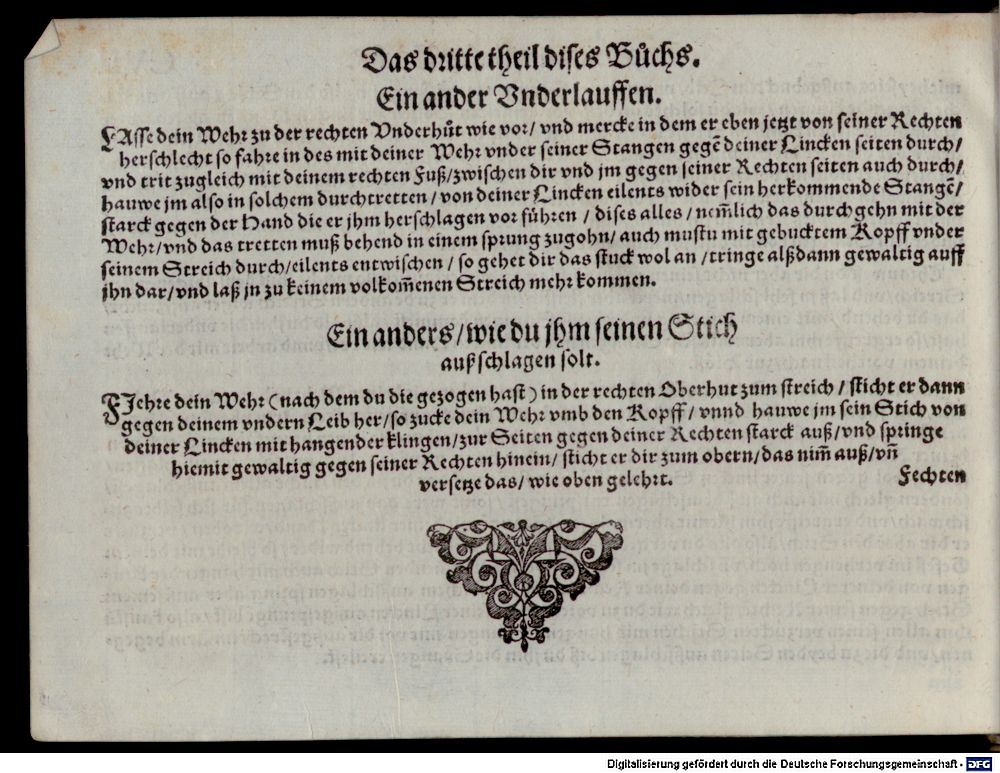 Das dritte theil dises Bůchs.
Ein ander Vnderlauffen.
LAsse dein Wehr zu der rechten Vnderhůt wie vor/ vnd mercke in dem er eben jetzt von seiner Rechten
herschlecht so fahre in des mit deiner Wehr vnder seiner Stangen gegē deiner Lincken seiten durch/
vnd trit zugleich mit deinem rechten Fuß/zwischen dir vnd jm gegen seiner Rechten seiten auch durch/
hauwe jm also in solchem durchtretten/ von deiner Lincken eilents wider sein herkommende Stangē/
starck gegen der Hand die er jhm herschlagen vor führen / dises alles / nem̄lich das durchgehn mit der
Wehr/ vnd das tretten muß behend in einem sprung zugohn/ auch mustu mit gebucktem Kopff vnder
seinem Streich durch/eilents entwischen / so gehet dir das stuck wol an /tringe alßdann gewaltig auff
jhn dar/ vnd laß jn zu keinem volkom̄enen Streich mehr kommen.
Ein anders/ wie du jhm seinen Stich
außschlagen solt.
FJehre dein Wehr (nach dem du die gezogen hast) in der rechten Oberhut zum streich/ sticht er dann
gegen deinem vndern Leib her/so zucke dein Wehr vmb den Kopff/ vnnd hauwe jm sein Stich von
deiner Lincken mit hangender klingen/zur Seiten gegen deiner Rechten starck auß/vnd springe
hiemit gewaltig gegen seiner Rechten hinein/ sticht er dir zum obern/das nim̄ auß/ vn̄
versetze das/ wie oben gelehrt.
Fechten
Digitalisierung gefördert durch die Deutsche Forschungsgemeinschaft - DFG